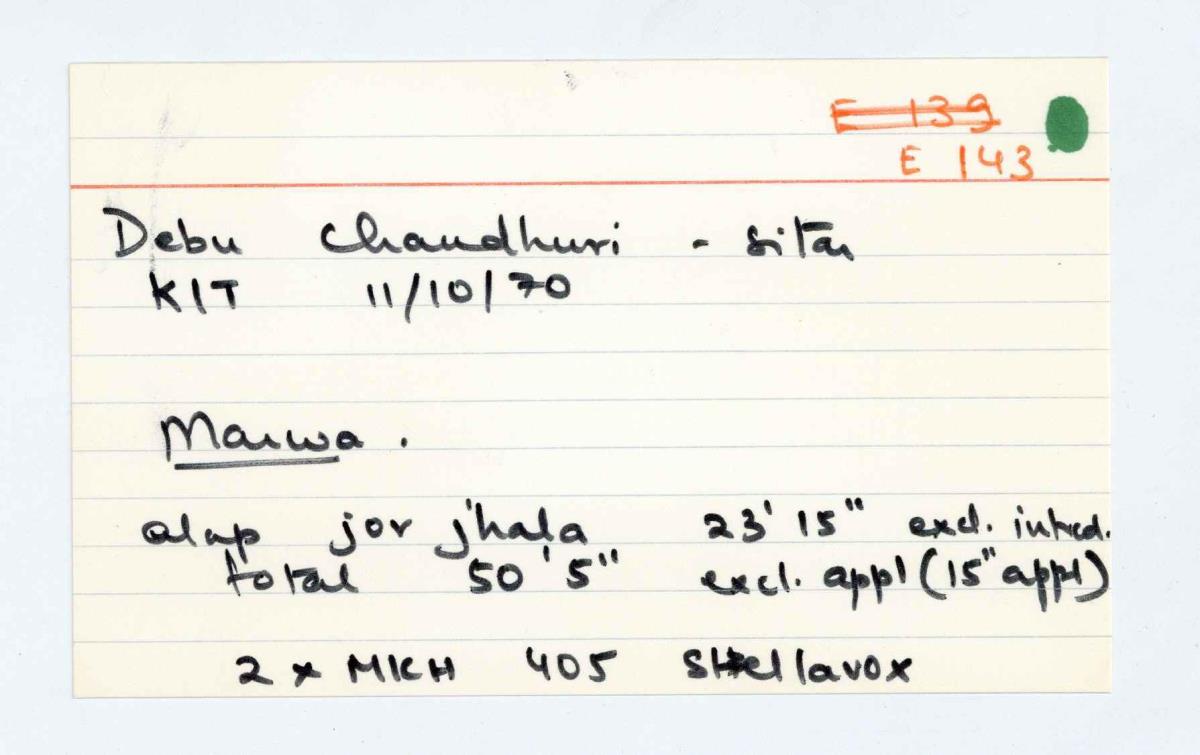 E 139
E 143
Debu Chaudhuri - sitar
KIT 11/10/70
Marwa.
alap jor jhala 23' 15" excl. introd.
total 50' 5" excl. appl (15" appl)
2 x MKH 405 Stellavox